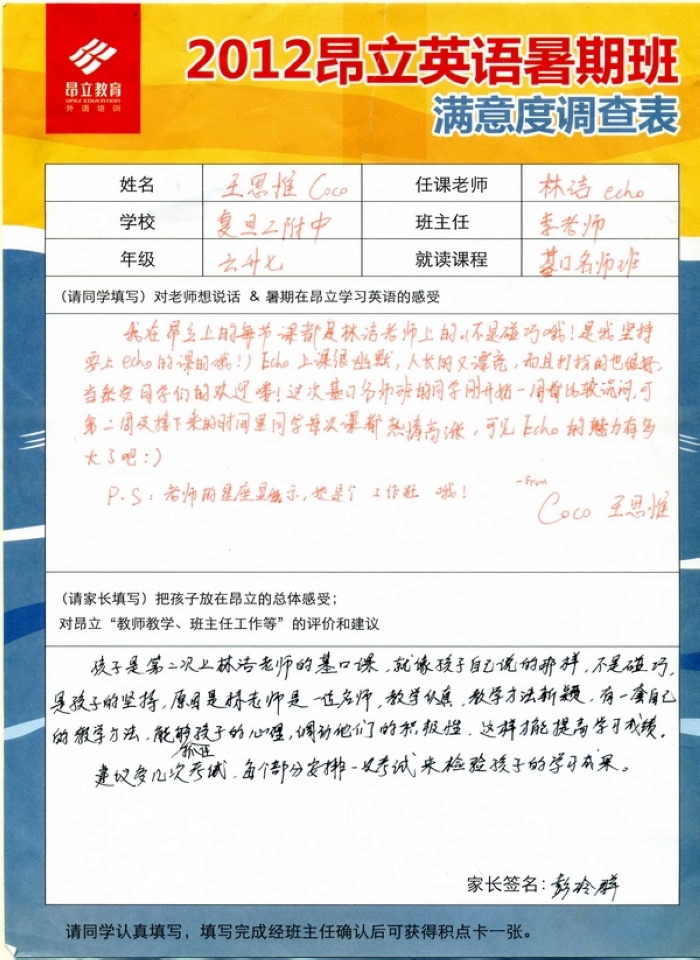 昂立教育
ONLY EDUCATION
外语培训
2012昂立英语暑期班
满意度调查表
姓名 王思惟 Coco 任课老师 林洁 echo
学校 复旦二附中 班主任 李老师
年级 六升七 就读课程 基口名师班
(请同学填写)对老师想说话 & 暑期在昂立学习英语的感受
我在昂立上的每节课都是林洁老师上的(不是碰巧哦!是我坚持
要上echo的课的哦!) Echo上课很幽默,人长的又漂亮,而且打扮的也很好,
当然受同学们的欢迎喽!这次基口名师班的同学刚开始一周都比较沉闷,可
第二周及接下来的时间里同学每次课都热情高涨,可见Echo的魅力有多
大了吧:)
P.S:老师的星座显示,她是个工作狂 哦!
-From
Coco 王思惟
(请家长填写)把孩子放在昂立的总体感受;
对昂立“教师教学、班主任工作等”的评价和建议
孩子是第二次上林洁老师的基口课,就像孩子自己说的那样,不是碰巧,
是孩子的坚持,原因是林老师是一位名师,教学认真,教学方法新颖,有一套自己
的教学方法,能够抓住孩子的心理,调动他们的积极性,这样才能提高学习成绩。
建议多几次考试,每个部分安排一次考试来检验孩子的学习成果。
家长签名:彭玲群
请同学认真填写,填写完成经班主任确认后可获得积点卡一张。